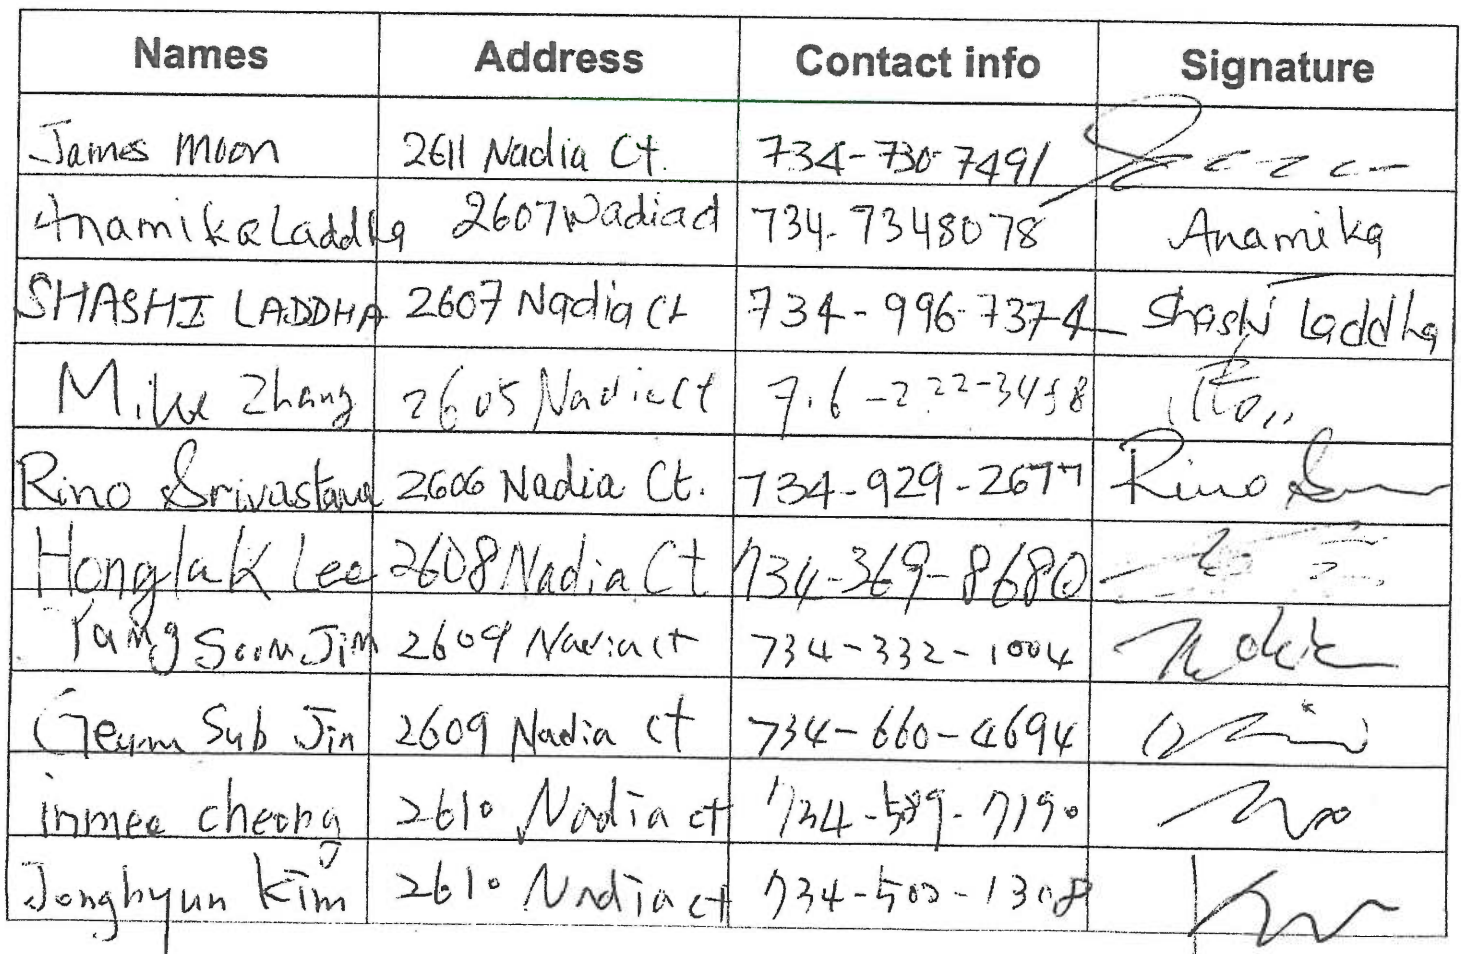 Names Address Contact info Signature
James Moon 2611 Nadia Ct. 734-730-7491
Anamika Laddha 2607 Nadia ct 734-7348078 Anamika
SHASHI LADDHA 2607 Nadia Ct 734-996-7374 Shashi Laddha
Mike Zhang 2605 Nadia Ct
Rino Srivastava 2606 Nadia Ct. 734-929-2677 Rino
Honglak Lee 2608 Nadia Ct 734-369-8680
Yang Soon Jin 2609 Nadia ct 734-332-1004
Geum Sub Jin 2609 Nadia ct 734-660-4694
inmee cheong 2610 Nadia ct 734-589-7190
Jonghyun Kim 2610 Nadia ct 734-502-1308